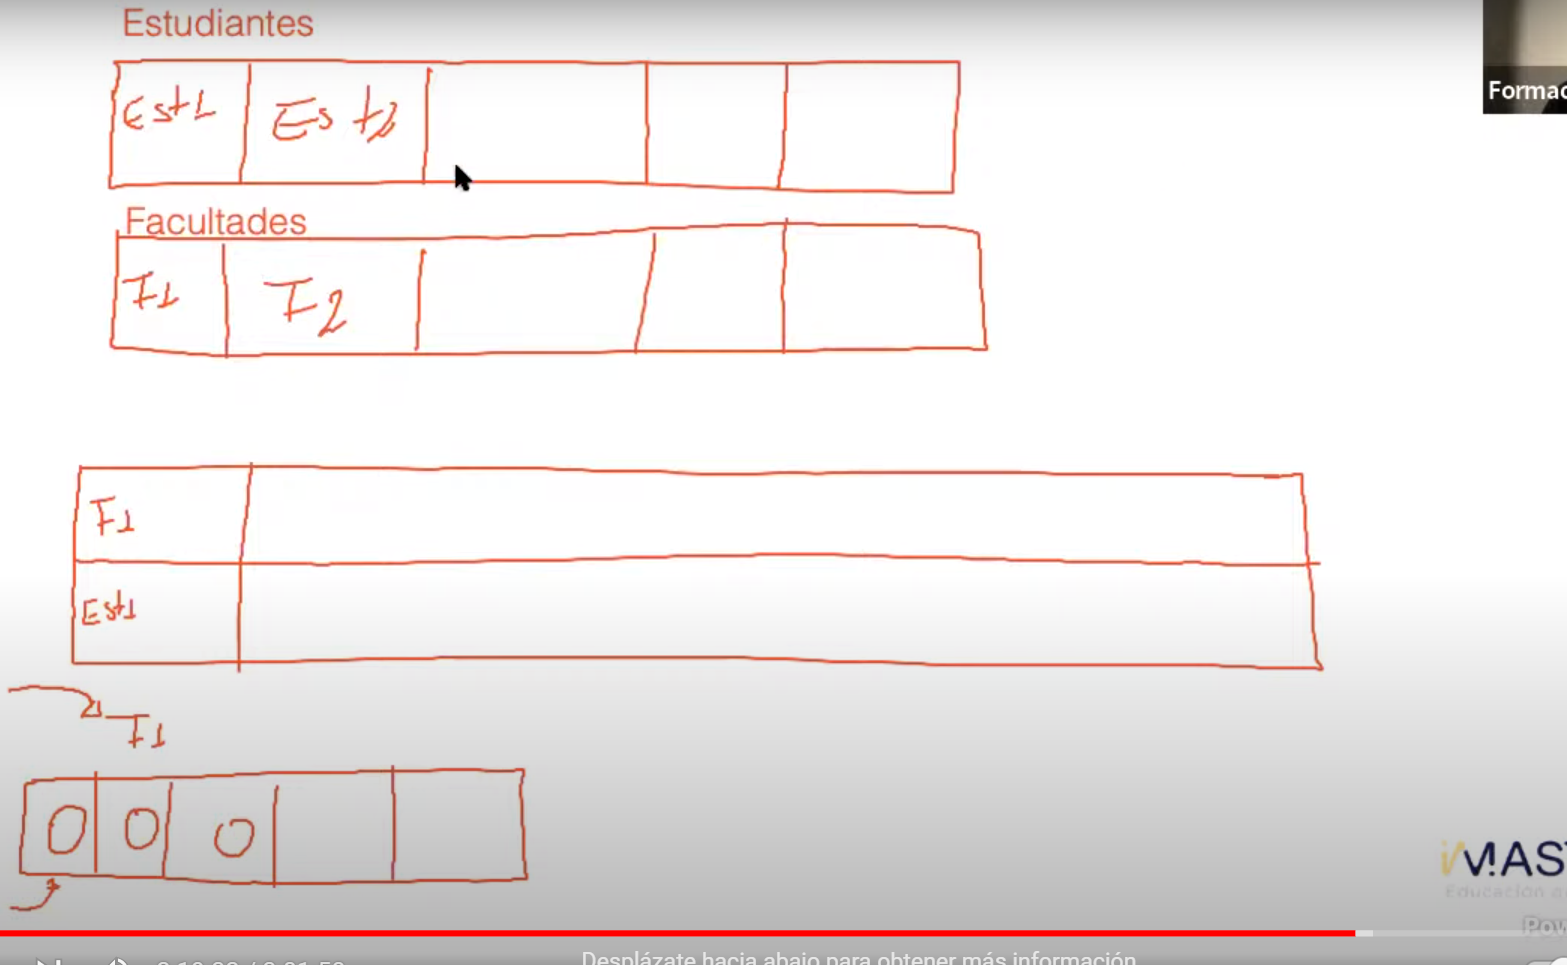 Estudiantes
Est1 Est2
Formac
Facultades
F1 F2
F1
Est1
F1
0 0 0
MAS
Educación a
Pow
Desplázate hacia abajo para obtener más información